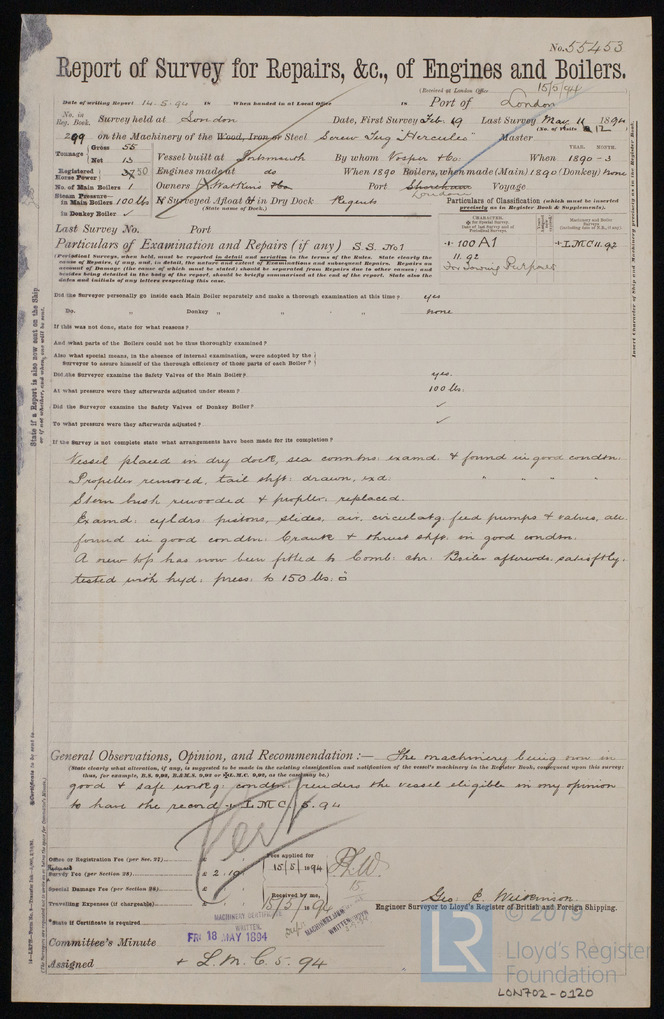 No. 55453
Report of Survey for Repairs, &c., of Engines and Boilers.
(Received at London Office 15/5/94
Date of writing Report 14.5.94 is When handed in at Local Office is Port of London
No. in Reg. Book. Survey held at London Date, First Survey Feb. 19 Last Survey May 11 1894
(No. of Visits 12)
299 on the Machinery of the Wood, Iron or Steel Screw Tug "Hercules" Master
Tonnage Gross 55 Net 13
Vessel built at Portsmouth By whom Vosper & Co: When 1890-3
YEAR. MONTH.
Registered Horse Power 50 Engines made at do When 1890 Boilers, when made (Main) 1890 (Donkey) none
No. of Main Boilers 1 Owners Watkins & Co Port Shoreham London Voyage
Steam Pressure in Main Boilers 100 lbs
in Donkey Boiler ✓
If Surveyed Afloat or in Dry Dock Regents
(State name of Dock.)
Particulars of Classification (which must be inserted precisely as in Register Book & Supplements).
Last Survey No. Port
Particulars of Examination and Repairs (if any) S.S. No 1
+ 100 A1
11.92
For Towing Purposes
+ L.M.C. 11.92
(Periodical Surveys, when held, must be reported in detail and seriatim in the terms of the Rules. State clearly the
cause of Repairs, if any, and, in detail, the nature and extent of Examinations and subsequent Repairs. Repairs on
account of Damage (the cause of which must be stated) should be separated from Repairs due to other causes; and
besides being detailed in the body of the report, should be briefly summarised at the end of the report. State also the
dates and initials of any letters respecting this case.
Did the Surveyor personally go inside each Main Boiler separately and make a thorough examination at this time? yes
Do. „ Donkey „ „ „ none
If this was not done, state for what reasons?
And what parts of the Boilers could not be thus thoroughly examined?
Also what special means, in the absence of internal examination, were adopted by the
Surveyor to assure himself of the thorough efficiency of those parts of each Boiler?
Did the Surveyor examine the Safety Valves of the Main Boiler? yes.
At what pressure were they afterwards adjusted under steam? 100 lbs.
Did the Surveyor examine the Safety Valves of Donkey Boiler? ✓
To what pressure were they afterwards adjusted? ✓
If the Survey is not complete state what arrangements have been made for its completion?
Vessel placed in dry dock, sea conntns: examd. & found in good condtn.
Propeller removed, tail shft: drawn, exd. " " " "
Stern bush rewooded & propller: replaced.
Examd: cyldrs: pistons, slides, air, circulatg. feed pumps & valves, all
found in good condtn: Crank & thrust shfts. in good condtn.
A new top has now been fitted to Comb: chr. Boiler afterwds. satisftly.
tested with hyd: press: to 150 lbs:
General Observations, Opinion, and Recommendation :— The machinery being now in
(State clearly what alteration, if any, is suggested to be made in the existing classification and notification of the vessel's machinery in the Register Book, consequent upon this survey:
thus, for example, B.S. 9,92, B.&M.S. 9,92 or ✠L.M.C. 9,92, as the case may be.)
good & safe workg: condtn: renders the vessel eligible in my opinion
to have the record + L M C. 5. 94
Office or Registration Fee (per Sec. 27) £
Survey Fee (per Section 28) £ 2.10
Special Damage Fee (per Section 28) £
Travelling Expenses (if chargeable) £
Fees applied for 15/5/1894
Received by me, 15/5/94
State if Certificate is required
MACHINERY CERTIFICATE
WRITTEN.
FRI 18 MAY 1894
Geo: E. Wilkinson
Engineer Surveyor to Lloyd's Register of British and Foreign Shipping.
Committee's Minute
Assigned + L.M.C. 5. 94
LR © 2019
Lloyd's Register
Foundation
LON702-0120
State if a Report is also now sent on the Ship
Insert Character of Ship and Machinery precisely as in the Register Book.